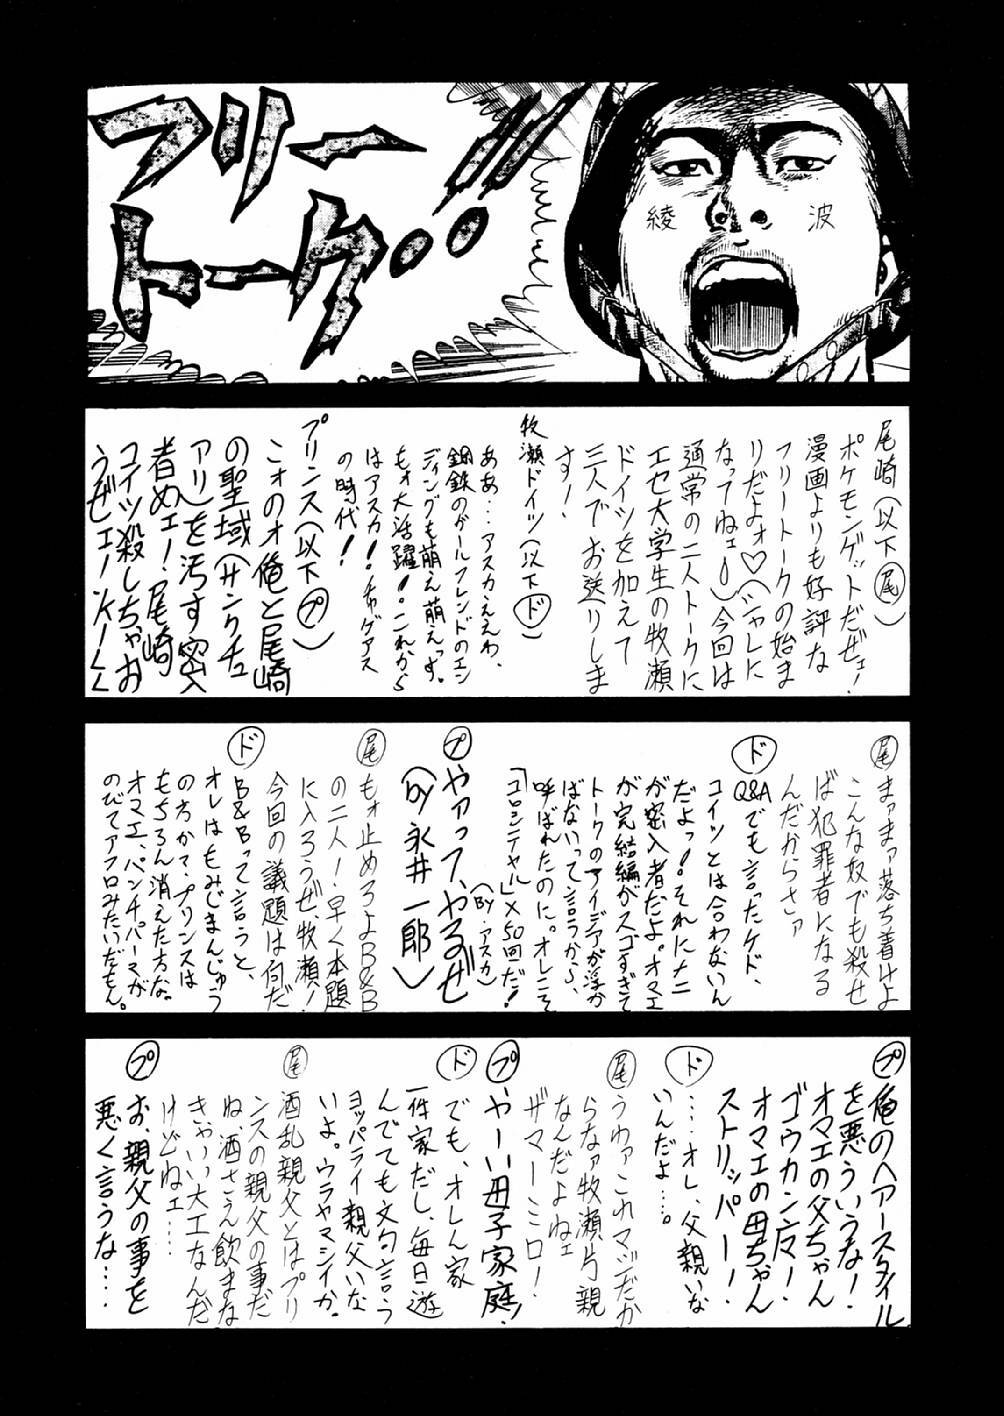 フリー
トーク・・!!
綾 波
尾崎(以下尾)
ポケモンゲットだぜェ!
漫画よりも好評な
フリートークの始ま
りだよォ♡(シャレに
なってねェ〜)今回は
通常の二人トークに
エセ大学生の牧瀬
ドイツを加えて
三人でお送りしま
す!
牧瀬ドイツ(以下ド)
ああ…アスカええわ、
鋼鉄のガールフレンドのエン
ディングも萌え萌えっす。
もォ大活躍!これから
はアスカ!チャゲアス
の時代!
プリンス(以下プ)
こォのォ俺と尾崎
の聖域(サンクチュ
アリ)を汚す密入
者めェ!尾崎
コイツ殺しちゃお
うぜェー、Kーくく
尾 まァまァ落ち着けよ
こんな奴でも殺せ
ば犯罪者になる
んだからさァ
ド Q&Aでも言ったケド、
コイツとは合わないん
だよっ!それにナニ
が密入者だよ。オマエ
が完結編がスゴすぎて
トークのアイデアが浮か
ばないって言うから、
呼ばれたのに。オレにこそ
「コロシテヤル」×50回だ!
(Byアスカ)
プ やァって、やるぜ
(by永井一郎)
尾 もォ止めろよB&B
の二人!早く本題
に入ろうぜ、牧瀬!
今回の議題は何だ
ド B&Bって言うと、
オレはもみじまんじゅう
の方かで、プリンスは
もちろん消えた方な。
オマエ、パンチパーマが
のびてアフロみたいだもん。
プ 俺のヘアースタイル
を悪ういうな!
オマエの父ちゃん
ゴウカン広マ!
オマエの母ちゃん
ストリッパー!
ド …オレ、父親いな
いんだよ…。
尾 うわァこれマジだか
らなァ牧瀬片親
なんだよねェ
ザマーミロ!
プ やーい母子家庭!
ド でも、オレん家
一件家だし、毎日遊
んでても文句言う
ヨッパライ親父いな
いよ。ウラヤマシイか。
尾 酒乱親父とはプリ
ンスの親父の事だ
ね、酒さえ飲まな
きゃいい大工なんだ
けどねェ……
プ お、親父の事を
悪く言うな…・